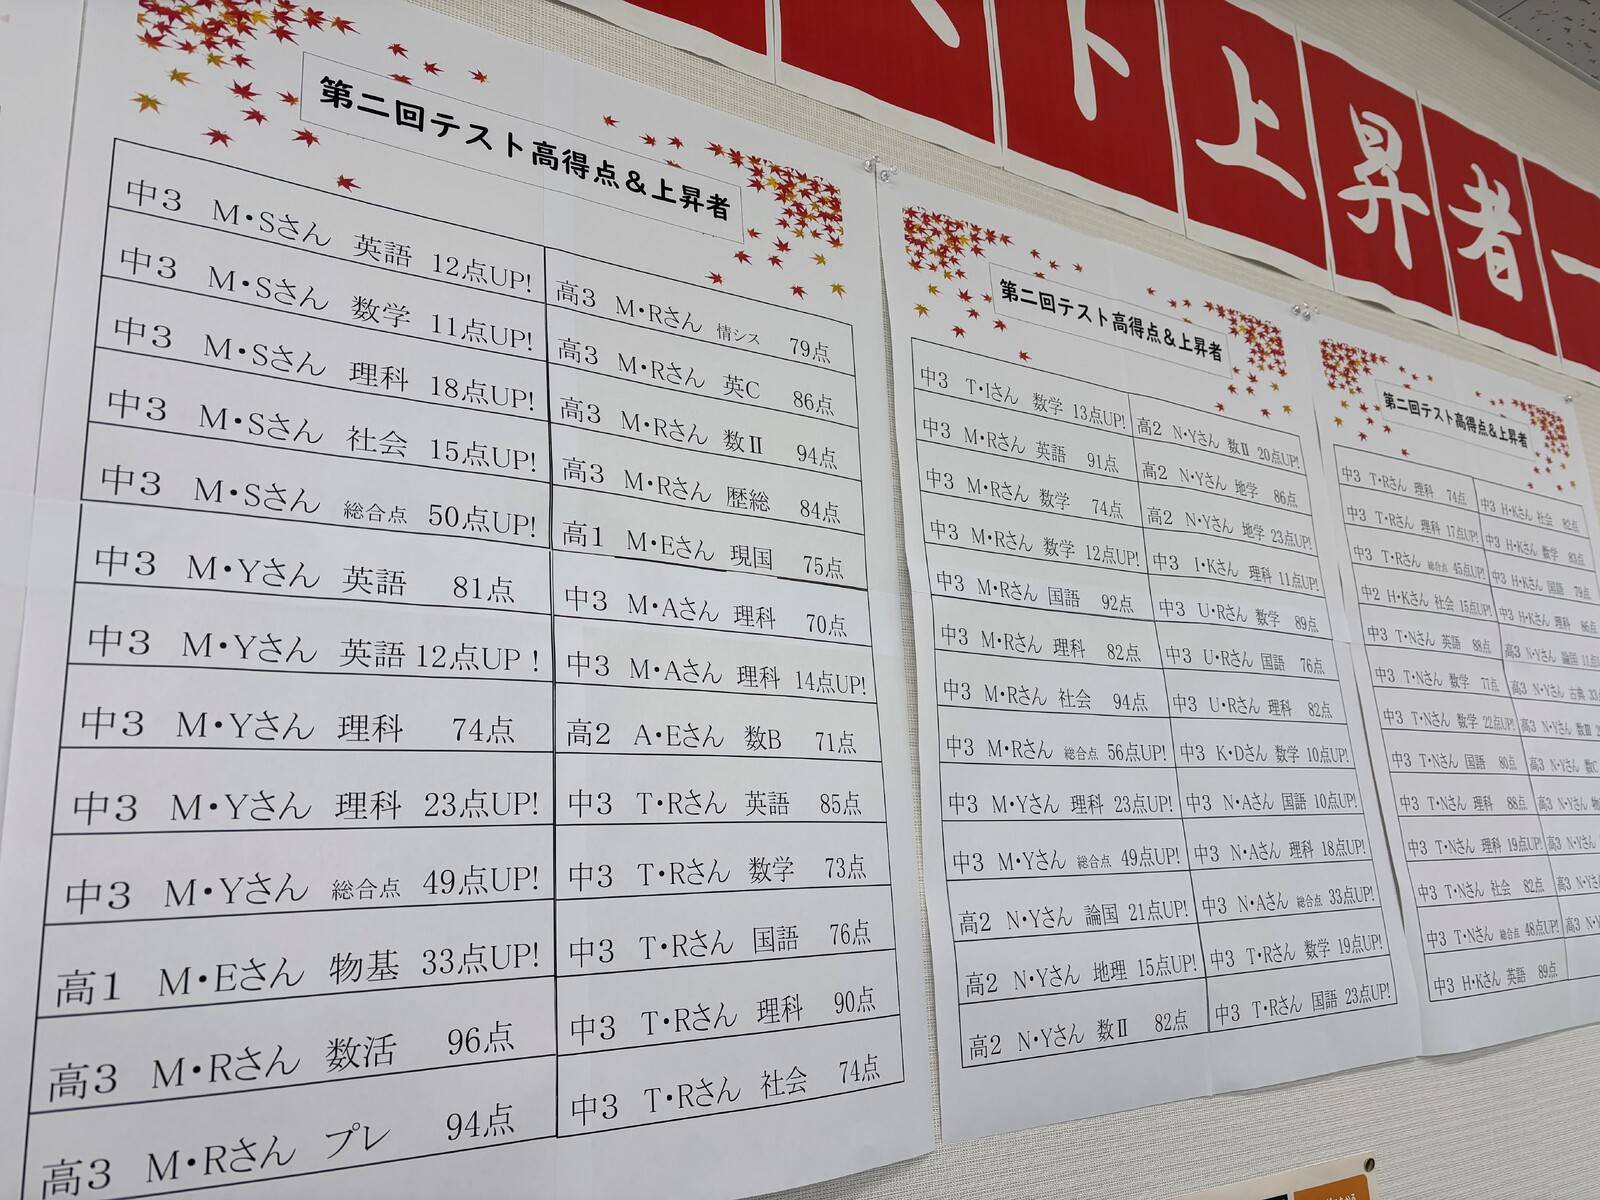 ト上昇者一
第二回テスト高得点&上昇者
中3 M・Sさん 英語 12点UP!
中3 M・Sさん 数学 11点UP!
中3 M・Sさん 理科 18点UP!
中3 M・Sさん 社会 15点UP!
中3 M・Sさん 総合点 50点UP!
中3 M・Yさん 英語 81点
中3 M・Yさん 英語 12点UP！
中3 M・Yさん 理科 74点
中3 M・Yさん 理科 23点UP!
中3 M・Yさん 総合点 49点UP!
高1 M・Eさん 物基 33点UP!
高3 M・Rさん 数活 96点
高3 M・Rさん プレ 94点
高3 M・Rさん 情シス 79点
高3 M・Rさん 英C 86点
高3 M・Rさん 数Ⅱ 94点
高3 M・Rさん 歴総 84点
高1 M・Eさん 現国 75点
中3 M・Aさん 理科 70点
中3 M・Aさん 理科 14点UP!
高2 A・Eさん 数B 71点
中3 T・Rさん 英語 85点
中3 T・Rさん 数学 73点
中3 T・Rさん 国語 76点
中3 T・Rさん 理科 90点
中3 T・Rさん 社会 74点
第二回テスト高得点&上昇者
中3 T・Iさん 数学 13点UP!
中3 M・Rさん 英語 91点
中3 M・Rさん 数学 74点
中3 M・Rさん 数学 12点UP!
中3 M・Rさん 国語 92点
中3 M・Rさん 理科 82点
中3 M・Rさん 社会 94点
中3 M・Rさん 総合点 56点UP!
中3 M・Yさん 理科 23点UP!
中3 M・Yさん 総合点 49点UP!
高2 N・Yさん 論国 21点UP!
高2 N・Yさん 地理 15点UP!
高2 N・Yさん 数Ⅱ 82点
高2 N・Yさん 数Ⅱ 20点UP!
高2 N・Yさん 地学 86点
高2 N・Yさん 地学 23点UP!
中3 I・Kさん 理科 11点UP!
中3 U・Rさん 数学 89点
中3 U・Rさん 国語 76点
中3 U・Rさん 理科 82点
中3 K・Dさん 数学 10点UP!
中3 N・Aさん 国語 10点UP!
中3 N・Aさん 理科 18点UP!
中3 N・Aさん 総合点 33点UP!
中3 T・Rさん 数学 19点UP!
中3 T・Rさん 国語 23点UP!
第二回テスト高得点&上昇者
中3 T・Rさん 理科 74点
中3 T・Rさん 理科 17点UP!
中3 T・Rさん 総合点 45点UP!
中2 H・Kさん 社会 15点UP!
中3 T・Nさん 英語 88点
中3 T・Nさん 数学 77点
中3 T・Nさん 数学 22点UP!
中3 T・Nさん 国語 80点
中3 T・Nさん 理科 88点
中3 T・Nさん 理科 19点UP!
中3 T・Nさん 社会 82点
中3 T・Nさん 総合点 48点UP!
中3 H・Kさん 英語 89点
中3 H・Kさん 社会 82点
中3 H・Kさん 数学 83点
中3 H・Kさん 国語 79点
中3 H・Kさん 理科 86点
高3 N・Yさん 論国 11点
高3 N・Yさん 古典 33
高3 N・Yさん 数Ⅲ
高3 N・Yさん 数C
高3 N・Yさん
高3 N・Yさん
高3 N・Y
高3 N・